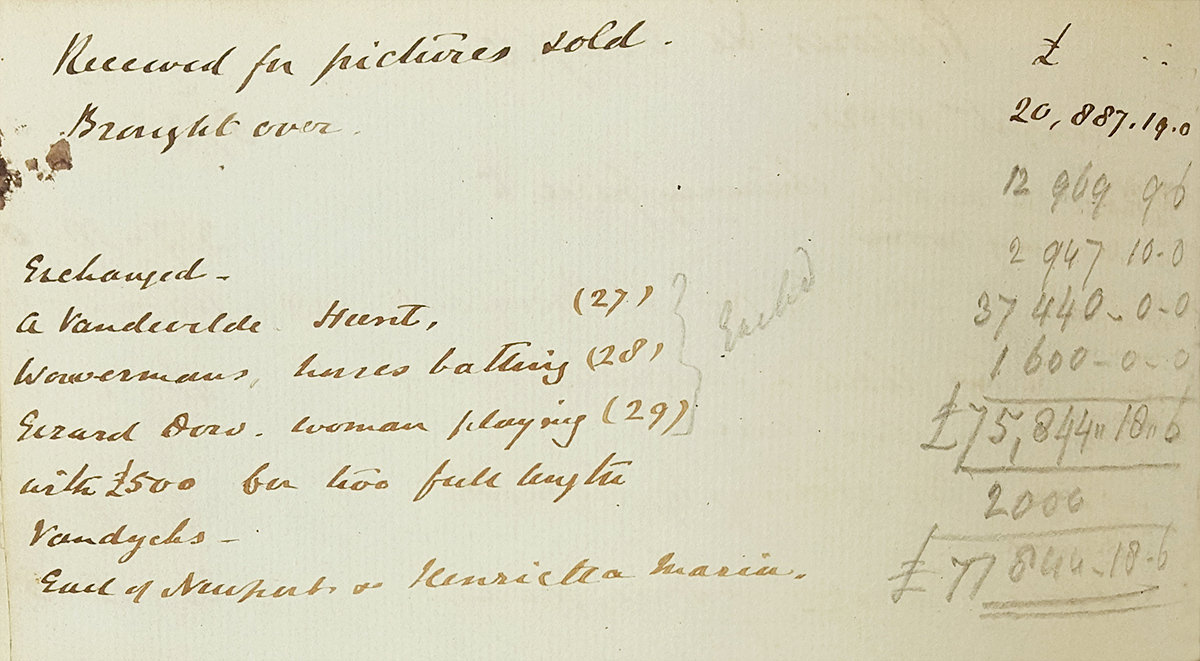 Received for pictures sold. £
Brought over. 20,887.19.0
12 969 9 6
2 947 10-0
Exchanged -
A Vandevelde Hunt, (27) 37 440-0-0
Wowermans, horses batting (28) 1 600-0-0
Gerard Dow. woman playing (29) £75,844"18"6
with £500 for two full length 2000
Vandycks - £77 844-18-6
Earl of Newport & Henrietta Maria.